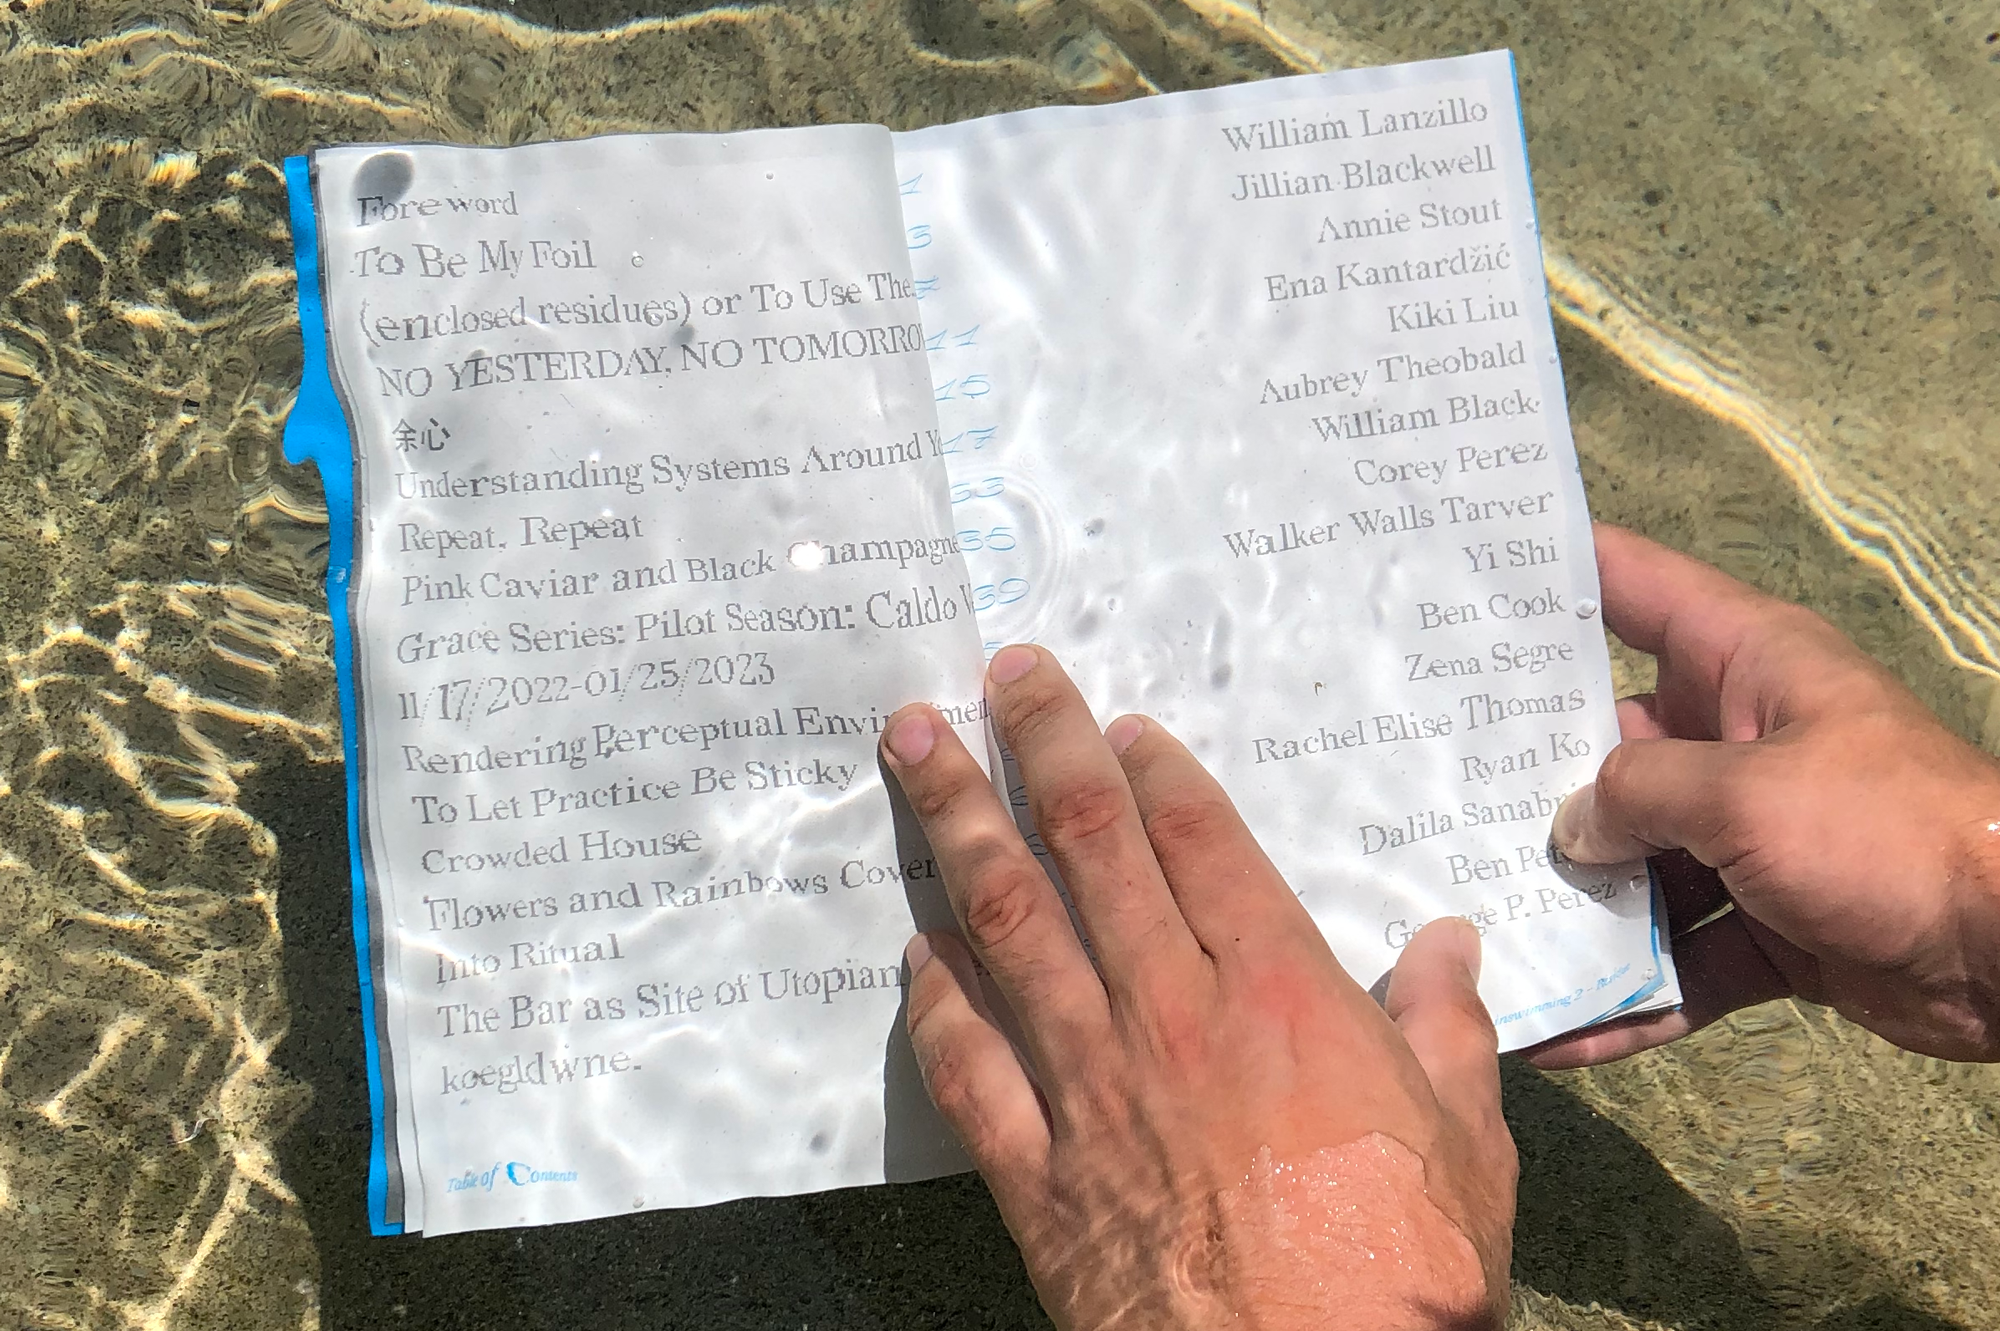 Foreword 1 William Lanzillo
To Be My Foil 3 Jillian Blackwell
(enclosed residues) or To Use The 7 Annie Stout
NO YESTERDAY, NO TOMORRO 11 Ena Kantardžić
余心 15 Kiki Liu
Understanding Systems Around 17 Aubrey Theobald
Repeat, Repeat 33 William Black
Pink Caviar and Black Champagne 35 Corey Perez
Grace Series: Pilot Season: Caldo 39 Walker Walls Tarver
11/17/2022-01/25/2023 Yi Shi
Rendering Perceptual Ben Cook
To Let Practice Be Sticky Zena Segre
Crowded House Rachel Elise Thomas
Flowers and Rainbows Cover Ryan Ko
Into Ritual Dalila Sanabri
The Bar as Site of Utopian Ben
koegldwne. George P. Perez
Table of Contents
inswimming 2 -